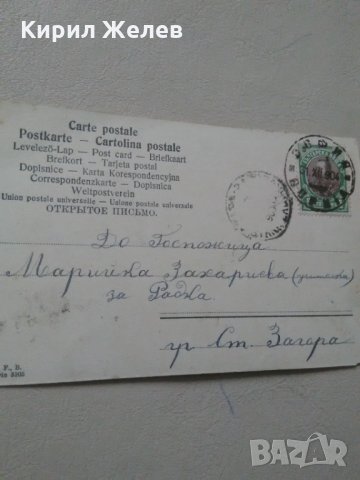 Кирил Желев
Carte postale
Postkarte — Cartolina postale
Levelező-Lap — Post card — Briefkaart
Brefkort — Tarjeta postal
Dopisnice — Karta Korespondencyjna
Correspondenzkarte — Dopisnica
Weltpostverein
Union postale universelle — Unione postale universale
ОТКРЫТОЕ ПИСЬМО.
До Госпожица
Марийка Захариева
за Радка
гр. Ст. Загора
F., B.
BAZAR